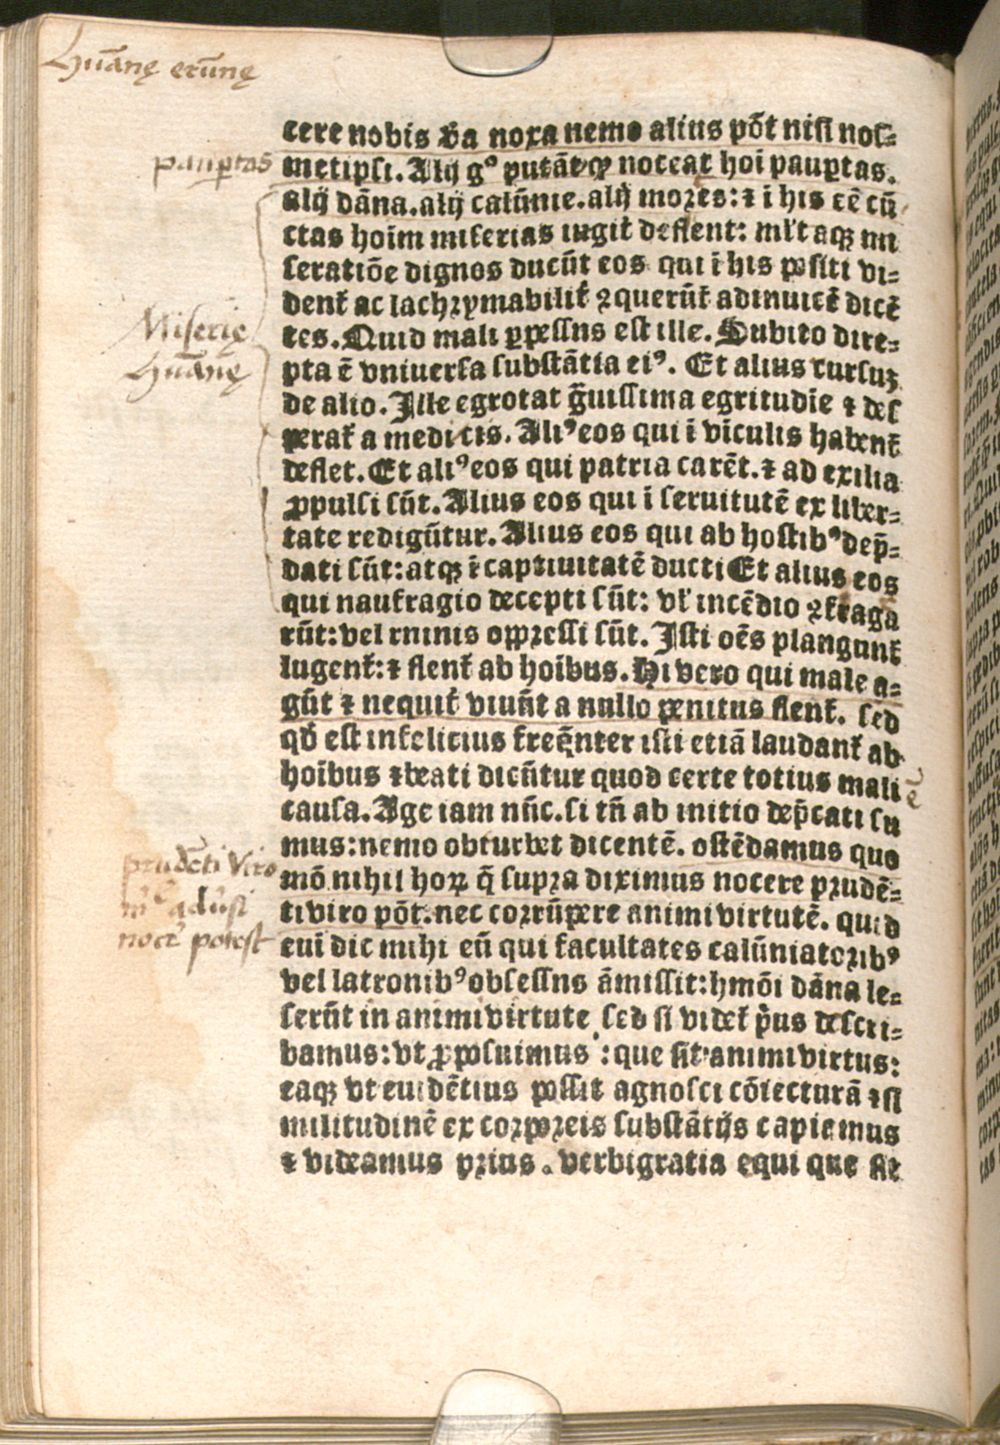 Hūanę erūnę
cere nobis v̓a noxa nemo alius põt nisi nos⸗
paup̱tas
metipsi. Alij gꝰ putāt ꝙ noceat hoĩ paup̱tas.
alij dãna. alij calũnie. alij moꝛes: ⁊ ĩ his cẽ cũ
ctas hoĩm miserias iugit̃ deflent: ml't aqꝫ mi
seratiõe dignos ducũt eos qui ĩ his positi vi⸗
dent̃ ac lachꝛymabilit̃ ꝯquerũt̃ adinuicẽ dicẽ
Miserię
hūanę
tes. Quid mali p̱pessus est ille. Subito dire⸗
pta ẽ vniuersa substãtia eiꝰ. Et alius rursuꝫ
de alio. Ille egrotat g̃uissima egritudĩe ⁊ des
perat̃ a medicis. Aliꝰ eos qui ĩ vĩculis habent̃
deflet. Et aliꝰ eos qui patria carẽt. ⁊ ad exilia
ꝓpulsi sũt. Alius eos qui ĩ seruitutẽ ex liber⸗
tate redigũtur. Alius eos qui ab hostibꝰ dep̃⸗
dati sũt: atqꝫ ĩ captiuitatẽ ducti Et alius eos
qui naufragio decepti sũt: vl' incẽdio ꝯfraga
rũt: vel ruinis oppꝛessi sũt. Isti oẽs plangunt̃
lugent̃: ⁊ flent̃ ab hoĩbus. Hi vero qui male a⸗
gũt ⁊ nequit̃ viuũt a nullo penitus flent̃. sed
qđ est infelicius freq̃nter isti etiã laudant̃ ab
hoĩbus ⁊ beati dicũtur quod certe totius mali ē
causa. Age iam nũc. si tñ ab initio dep̃cati su
mus: nemo obturbet dicentẽ. ostẽdamus quo
prudēti viro
nl adusi
nocē potest
mõ nihil hoꝝ q̃ supꝛa diximus nocere pꝛudẽ⸗
ti viro põt. nec coꝛrũpere animi virtutẽ. quid
eni dic mihi eũ qui facultates calũniatoꝛibꝰ
vel latronibꝰ obsessus ãmissit: hmõi dãna le⸗
serũt in animi virtute sed si videt̃ p̃us descri⸗
bamus: vt ꝓposuimus: que sit animi virtus:
eaqꝫ vt euidẽtius possit agnosci cõiecturã ⁊ si
militudinẽ ex coꝛpoꝛeis substãtijs capiemus
⁊ videamus pꝛius. verbigratia equi que sit